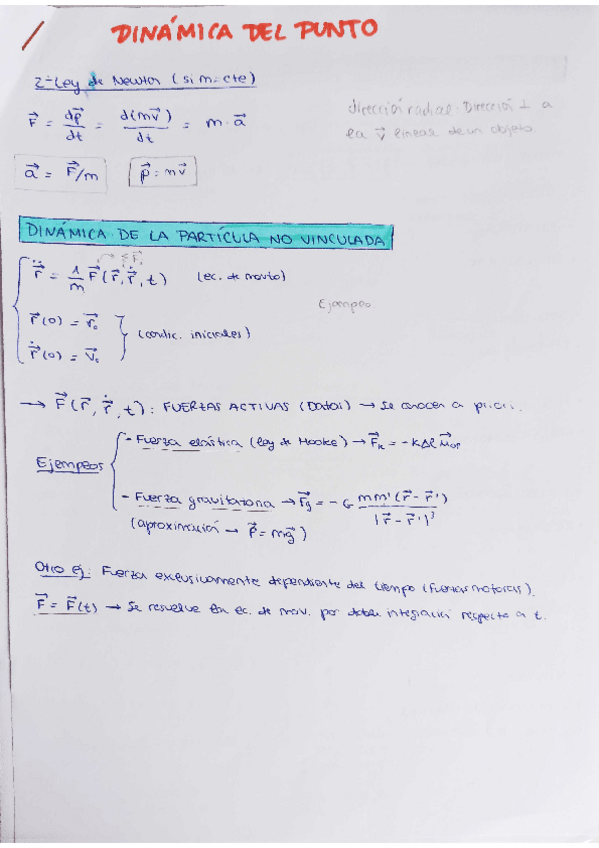 DINÁMICA DEL PUNTO
2ª Ley de Newton (si m=cte)
F⃗ = dp⃗/dt = d(mv⃗)/dt = m·a⃗
dirección radial: Dirección ⊥ a
la v⃗ lineal de un objeto.
a⃗ = F⃗/m   p⃗ = mv⃗
DINÁMICA DE LA PARTÍCULA NO VINCULADA
r̈⃗ = 1/m F⃗(r⃗, ṙ⃗, t) (ec. de movto)
Ejemplo
r⃗(0) = r⃗₀
ṙ⃗(0) = v⃗₀
(condic. iniciales)
→ F⃗(r⃗, ṙ⃗, t): FUERZAS ACTIVAS (Datos) → Se conocen a priori.
Ejemplos
- Fuerza elástica (Ley de Hooke) → F⃗ₖ = -KΔl μ⃗OP
- Fuerza gravitazona → F⃗g = -G mm'(r⃗ - r⃗')/|r⃗ - r⃗'|³
(aproximación → P⃗ = mg⃗)
Otro ej: Fuerza exclusivamente dependiente del tiempo (fuerzas motoras).
F⃗ = F⃗(t) → Se resuelve la ec. de mov. por doble integración respecto a t.